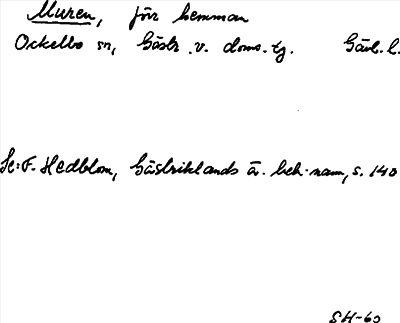 Muren, förr hemman
Ockelbo sn, Gästr. v. doms. tg. Gävl. l.
Se: F. Hedblom, Gästriklands ä. beb. namn, s. 140
SH-60